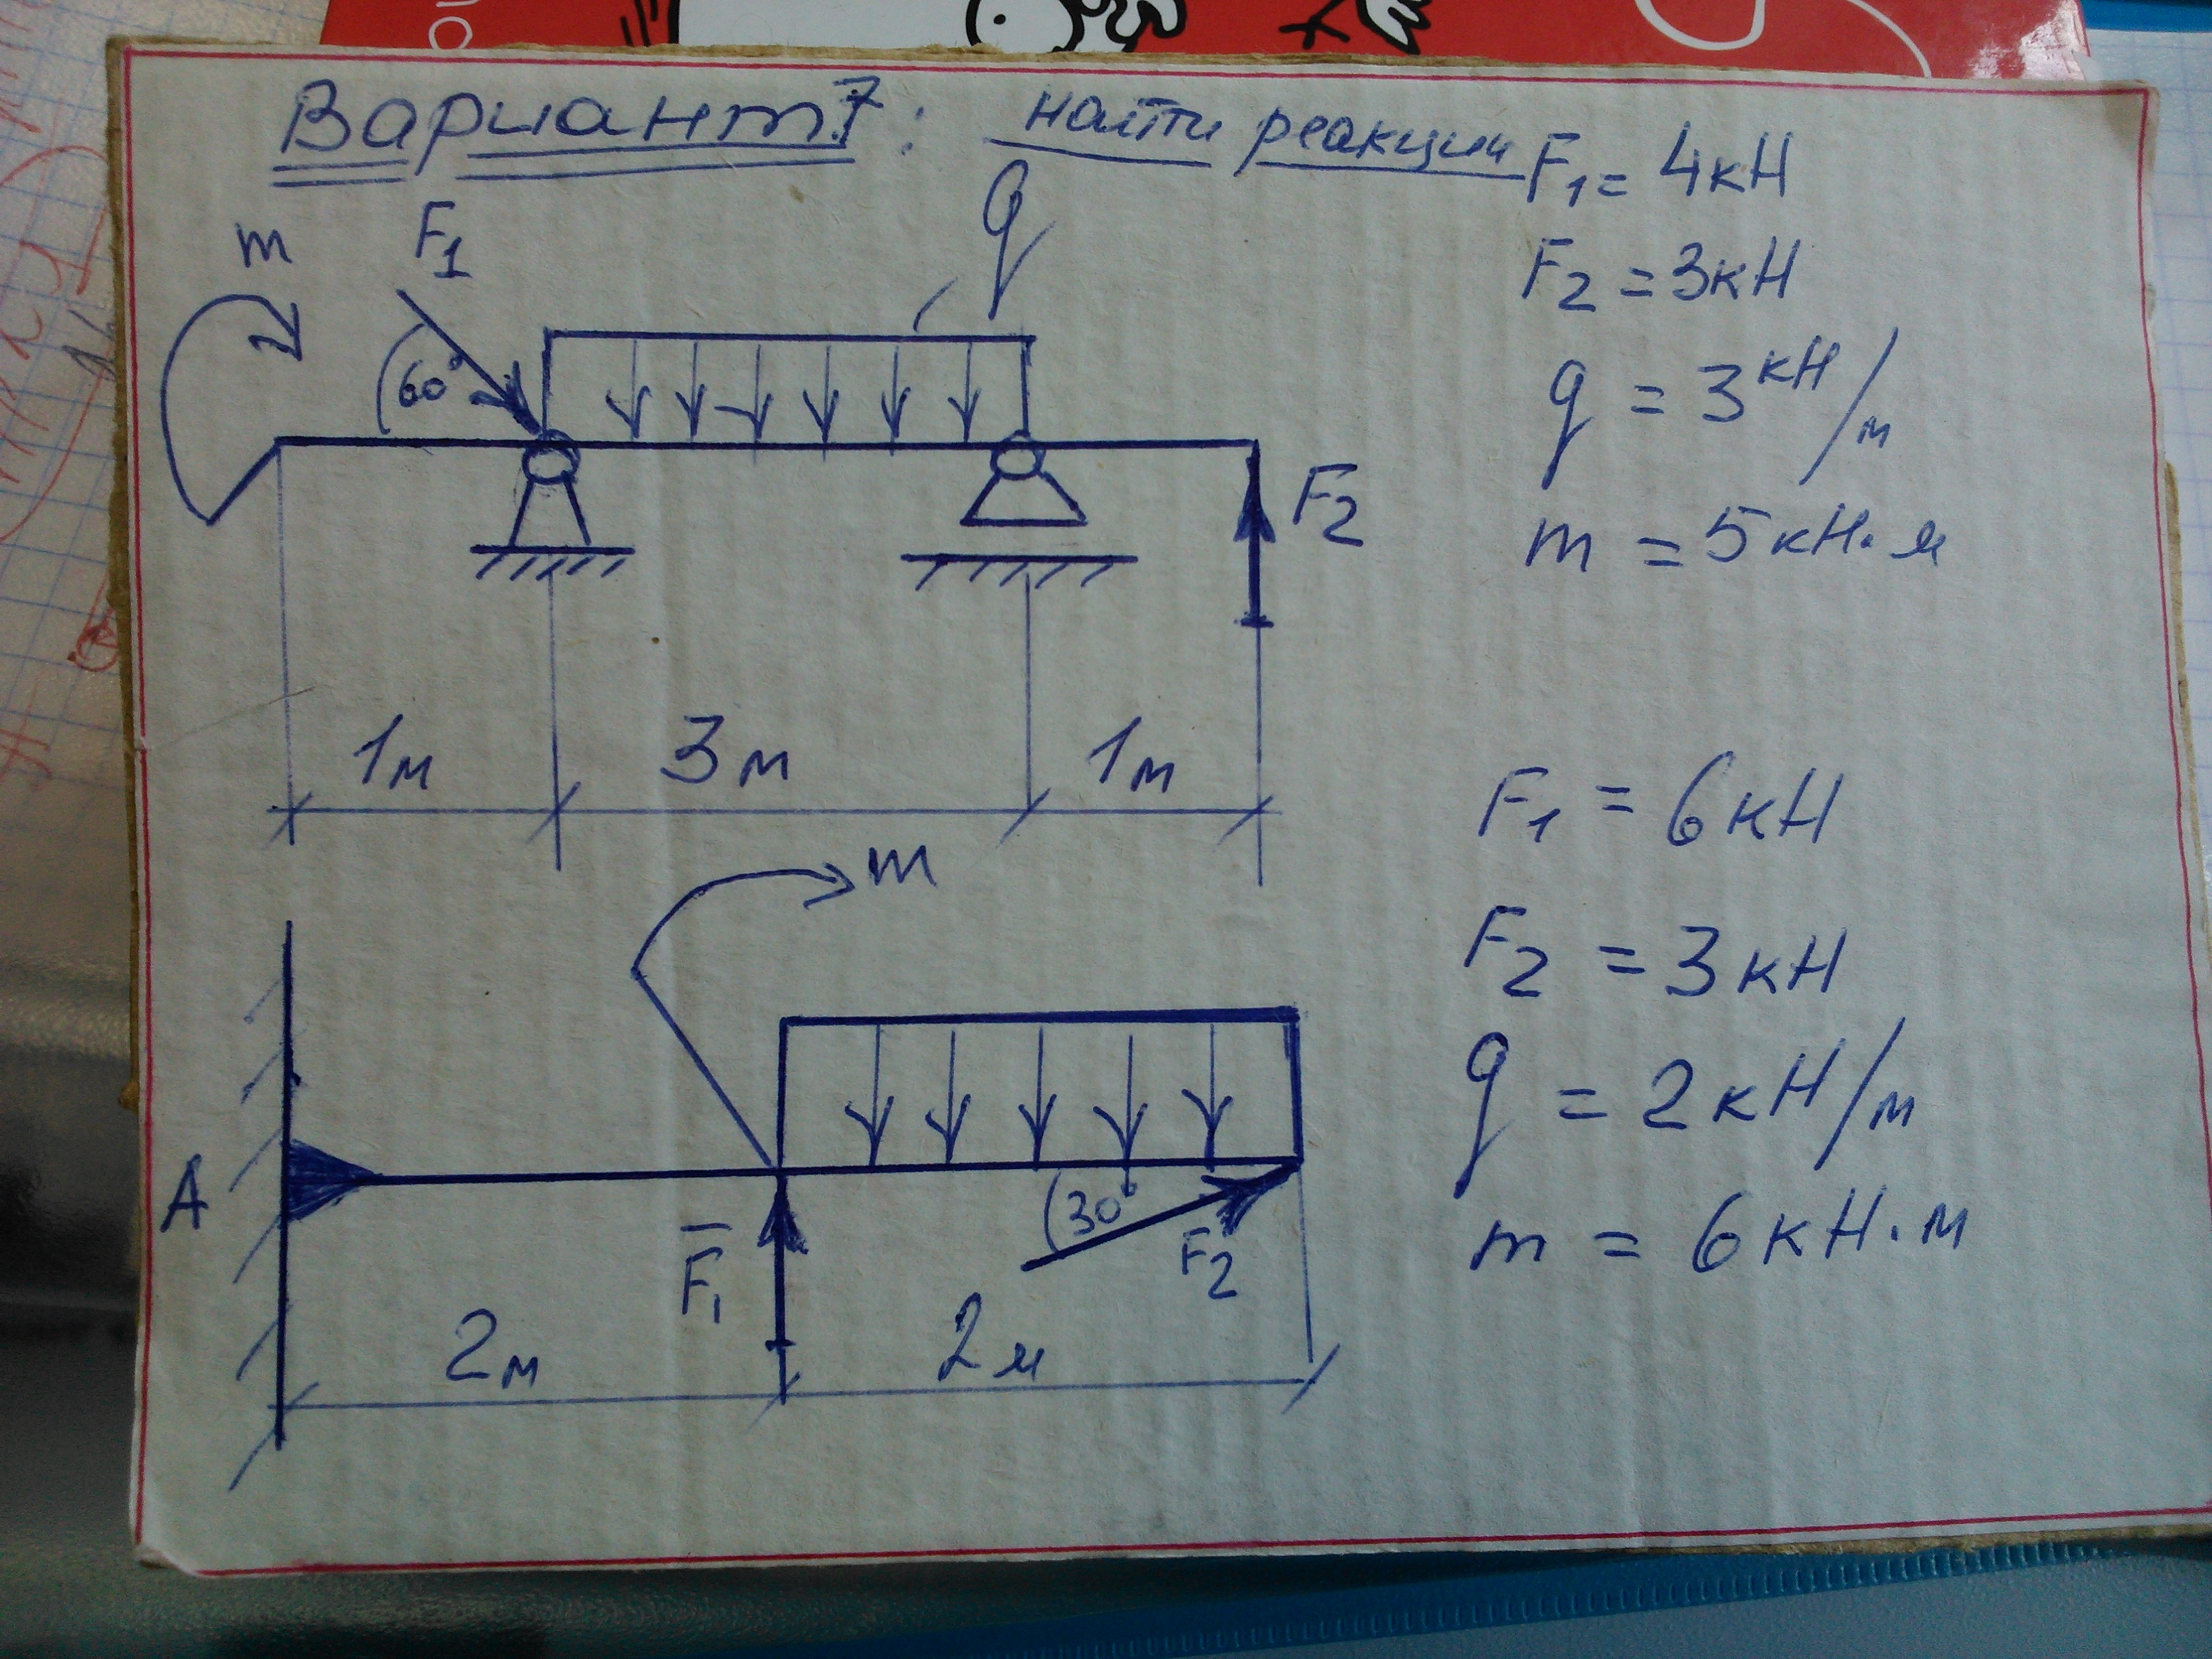 Вариант 7: найти реакции
F1 = 4кН
F2 = 3кН
q = 3 кН/м
m = 5 кН·м
m
F1
q
60°
F2
1м
3м
1м
F1 = 6кН
F2 = 3кН
q = 2кН/м
m = 6кН·м
m
A
30°
F1
F2
2м
2м